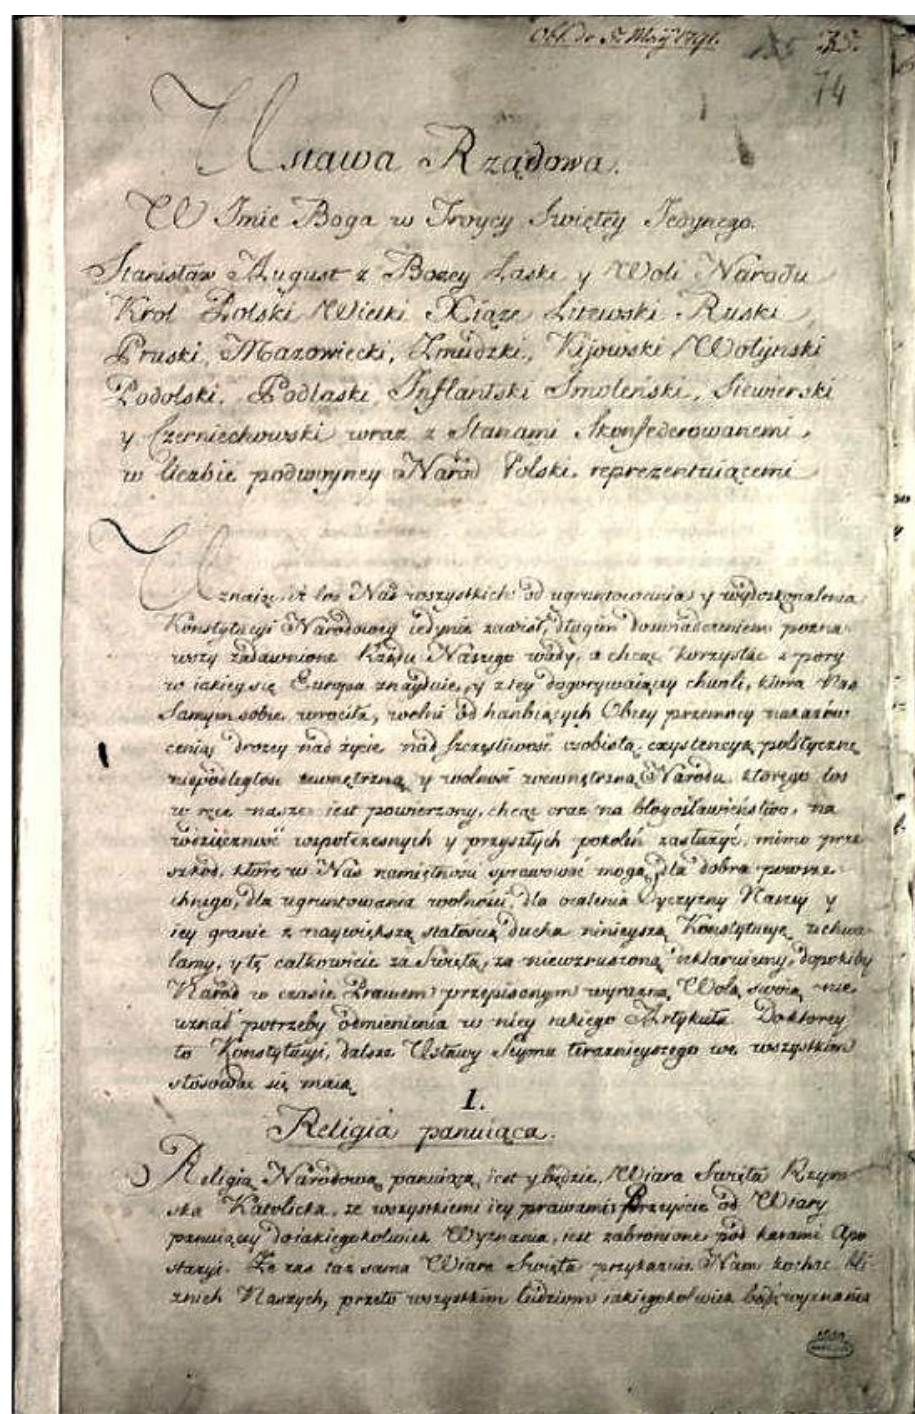 Obl. de 5ta Maij 1791.
155 35.
74
Ustawa Rządowa.
W Imie Boga w Troycy Swiętey Jedynego.
Stanisław August z Bożey Łaski y Woli Narodu
Krol Polski Wielki Xiąże Litewski Ruski
Pruski, Mazowiecki, Zmudzki, Kijowski Wołyński
Podolski, Podlaski, Inflantski Smoleński, Siewierski
y Czerniechowski wraz z Stanami Skonfederowanemi,
w liczbie podwoyney Naród Polski reprezentuiącemi
Uznaiąc, iż los Nas wszystkich od ugruntowania y wydoskonalenia
Konstytucyi Narodowey iedynie zawisł, długim doswiadczeniem pozna-
wszy zadawnione Rządu Naszego wady, a chcąc korzystać z pory
w iakiey się Europa znayduie, y z tey dogorywaiącey chwili, ktora Nas
Samym sobie wrociła, wolni od hańbiących Obcey przemocy nakazów
ceniąc drożey nad życie, nad szczęśliwość osobistą, exystencyą polityczną
niepodległosc zewnętrzną y wolność wewnętrzną Narodu, ktorego los
w ręce nasze iest powierzony, chcąc oraz na błogosławieństwo, na
wdzięczność wspołczesnych y przyszłych pokoleń zasłużyć, mimo prze-
szkod, ktore w Nas namiętnosci sprawować mogą, dla dobra powsze-
chnego, dla ugruntowania wolności, dla ocalenia Oyczyzny Naszey y
iey granic z naywiększą stałością ducha ninieyszą Konstytucyę uchwa-
lamy, y tę całkowicie za Swiętą, za niewzruszoną deklaruiemy, dopokiby
Naród w czasie Prawem przepisanym wyrazną Wolą swoią nie
uznał potrzeby odmienienia w niey iakiego Artykułu. Do ktorey
to Konstytucyi, dalsze Ustawy Seymu teraznieyszego we wszystkim
stosować się maią
I.
Religia panuiąca.
Religią Narodową panuiącą iest y będzie, Wiara Swięta Rzym-
ska Katolicka, ze wszystkiemi iey prawami; Przeyście od Wiary
panuiącey do iakiegokolwiek Wyznania, iest zabronione pod karami Apo-
stazyi. Że zas taż sama Wiara Swięta przykazuie Nam kochać bli-
znich Naszych, przeto wszystkim ludziom iakiegokolwiek bądź wyznania